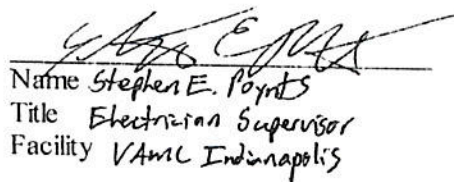 Name Stephen E. Poynts
Title Electrician Supervisor
Facility VAMC Indianapolis